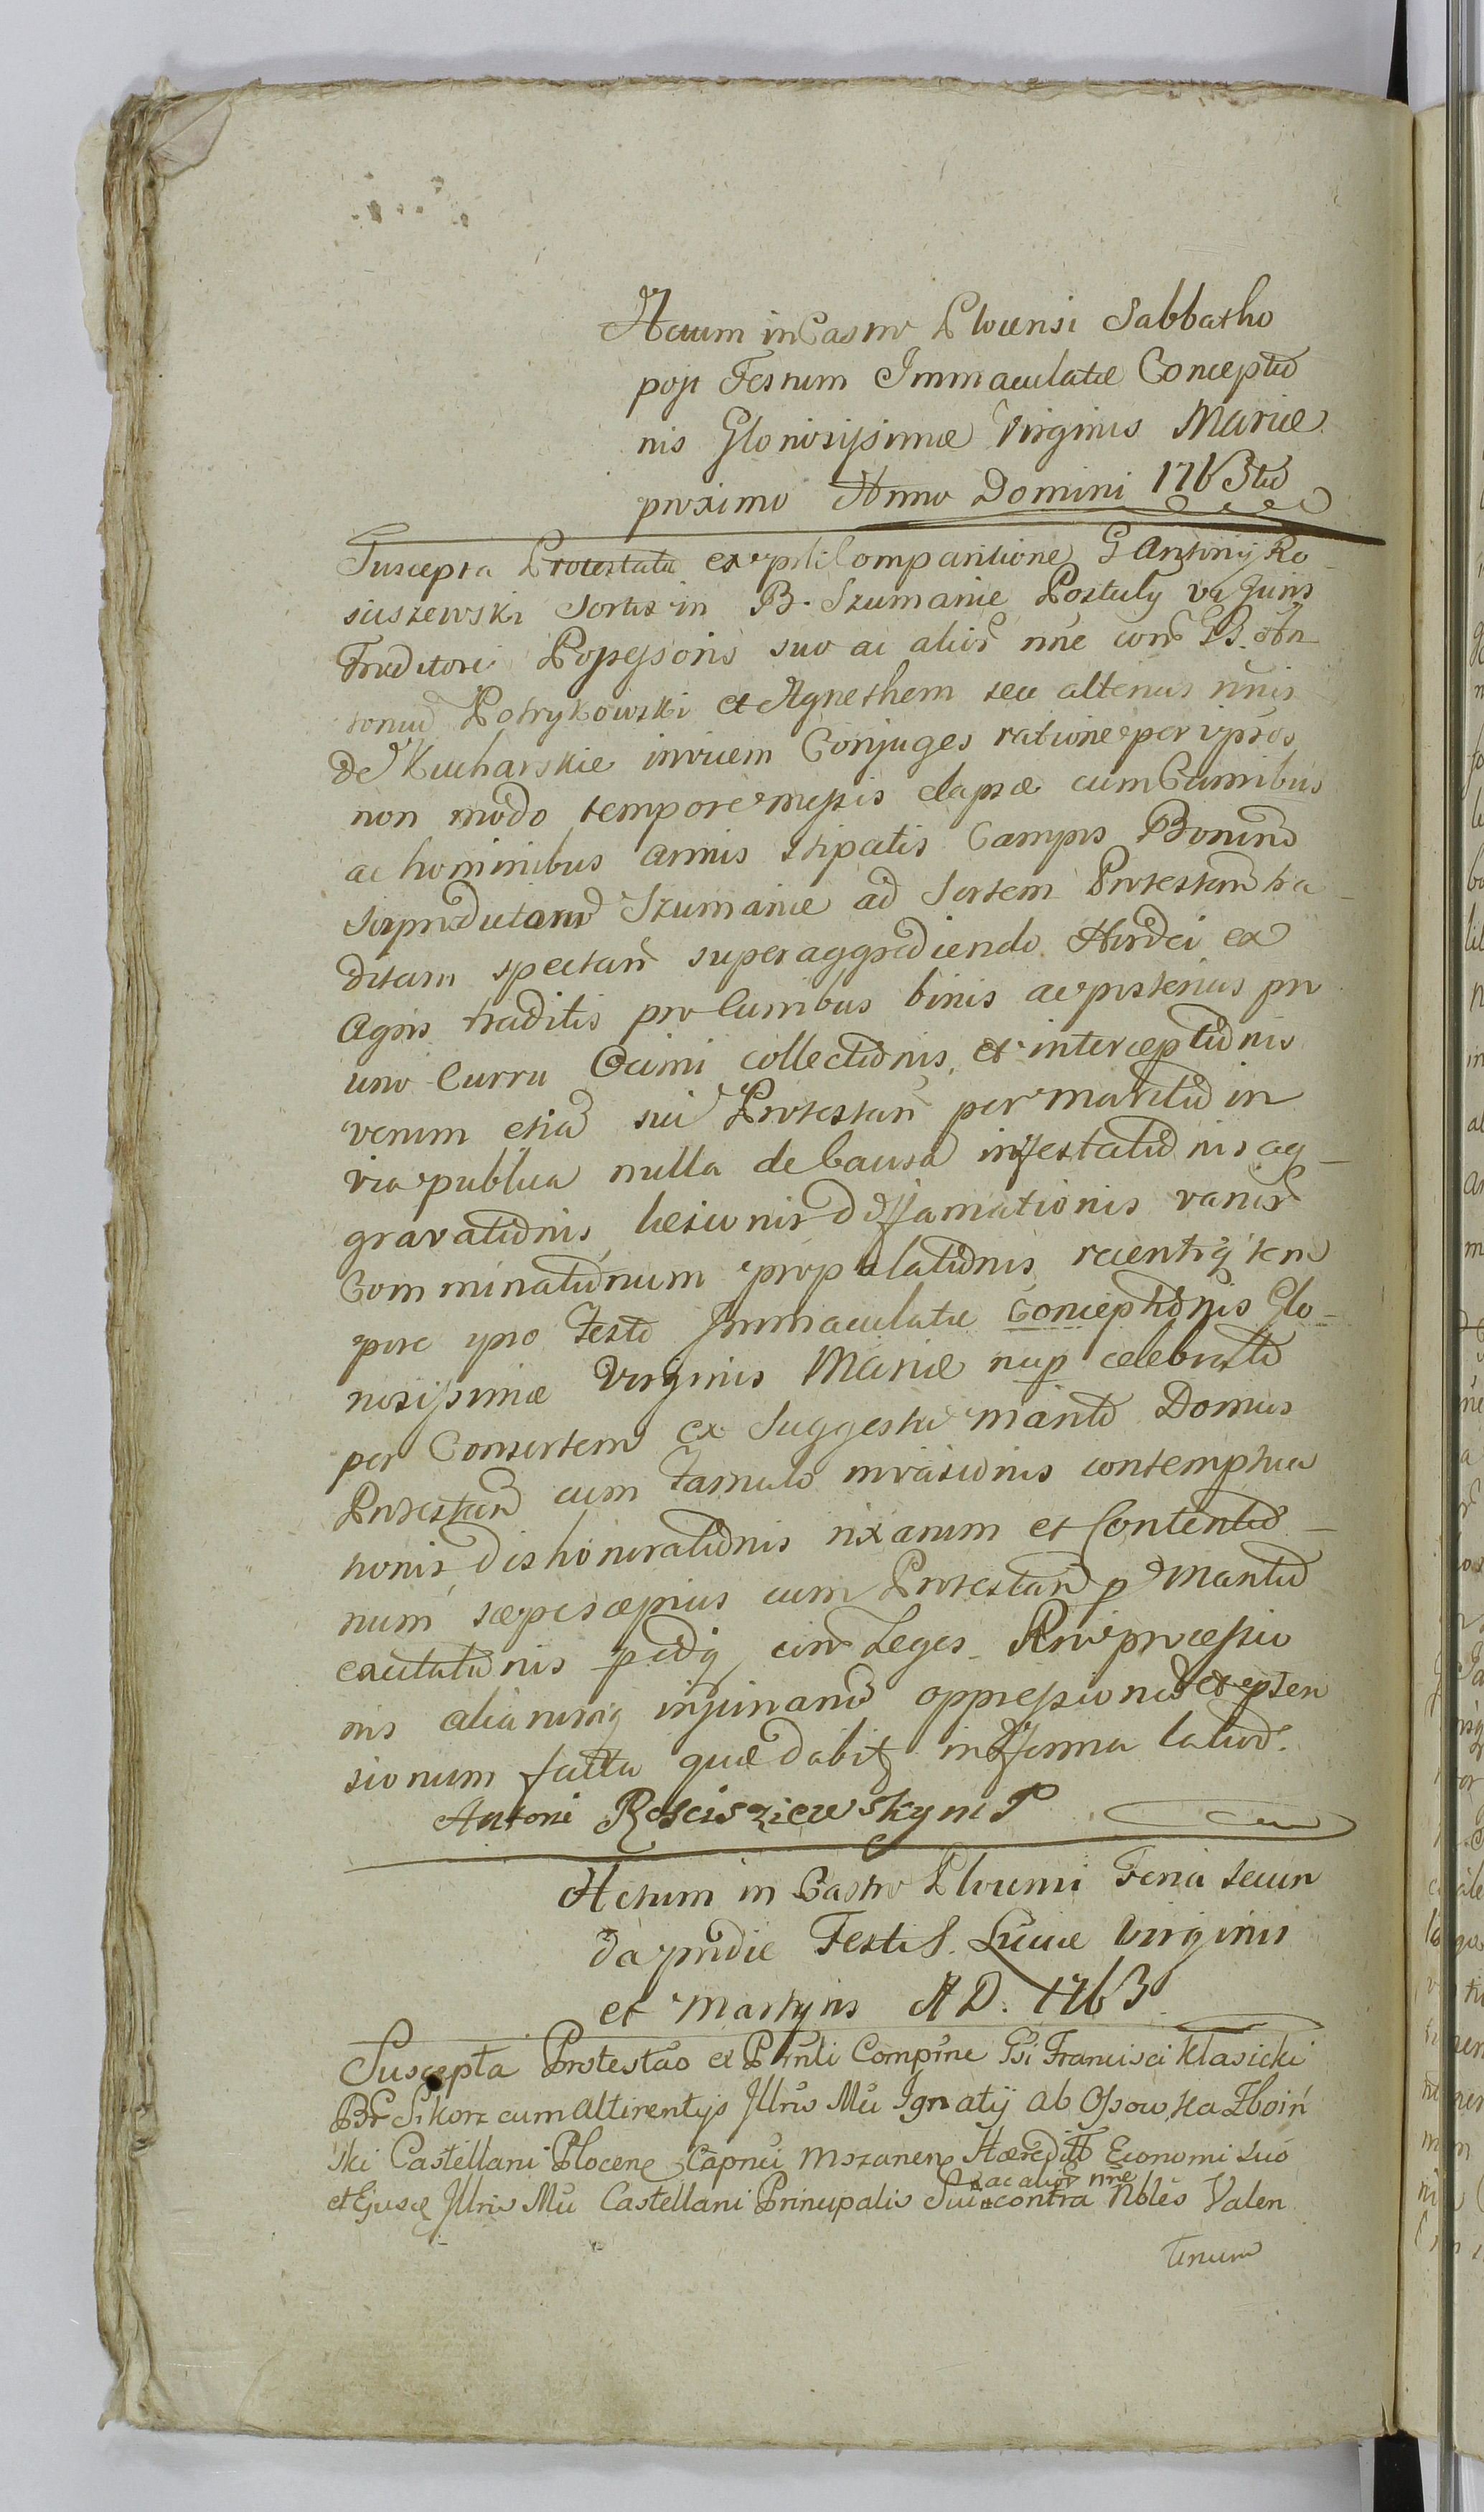 Actum in Castro Plocensi Sabbatho
post Festum Immaculatæ Conceptio
nis Gloriosissimæ Virginis Mariæ
proximo Anno Domini 1763tio
Suscepta Protestatio ex psli Comparitione G Antonij Ro
sciszewski Sortis in B. Szumanie Postuly va Juris
Traditorii Possessoris suo ac alior nne contr B. An
tonium Potrykowski et Agnethem seu alterius nnis
de Kucharskie invicem Conjuges ratione per ipsos
non modo tempore messis elapsæ cum Curribus
ac hominibus armis stipatis Campis Bonorum
Szumanie ad Sortem Protestan tra
ditam spectan superaggrediendo Hordei ex
Agris traditis pro Curribus binis ac posterius pro
uno Curru Ocimi collectionis, et interceptionis
verum etia sui Protestan per maritum in
via publica nulla de Causa infestationis ag
gravationis, læsionis diffamationis varior
Comminationum propalationis recentiq tem
pore ipso Festo Immaculatæ Conceptionis Glo
riosissimæ Virginis Mariæ nup celebrato
per Consortem ex Suggestu mariti Domus
Protestan cum Famulo invasionis contemptua
tionis dishonorationis rixarum et Contentio
num sæpesæpius cum Protestan p Maritum
excitationis contr Leges processio
nis aliarumq injuriarum oppressionis et 
sionum facta quæ dabit in forma latior.
Antoni Roscisziewsky mP
Actum in Castro Plocensi Feria Secun
da pridie Festi S. Luciæ Virginis
et Martyris A D. 1763
Suscepta Protestao ex Prnli Compne Gsi Francisci Klasicki
Br Sikorz cum Attinentijs Jllris Mci Ignatij ab Ossowka Zboiń
ski Castellani Plocen Capnei Mszanen Hæredit Economi suo
ac alior nne
et Ejusde Jllris Mci Castellani Principalis Sui contra Nobles Valen
tinum